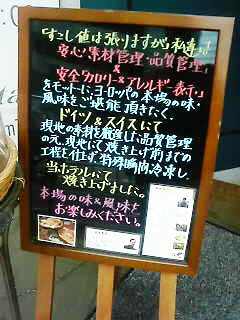 「すこし値は張りますが私達は
安心素材管理・品質管理」
&
安全カロリー&アレルギー表示」
をモットーにヨーロッパの本場の味・
風味をご堪能頂きたく、
ドイツ&スイスにて
現地の素材を厳選した品質管理
の元、現地にて焼き上げ前までの
工程を仕上げ特殊瞬間冷凍し、
当ホテルにて
焼き上げました。
本場の味&風味を
お楽しみください。